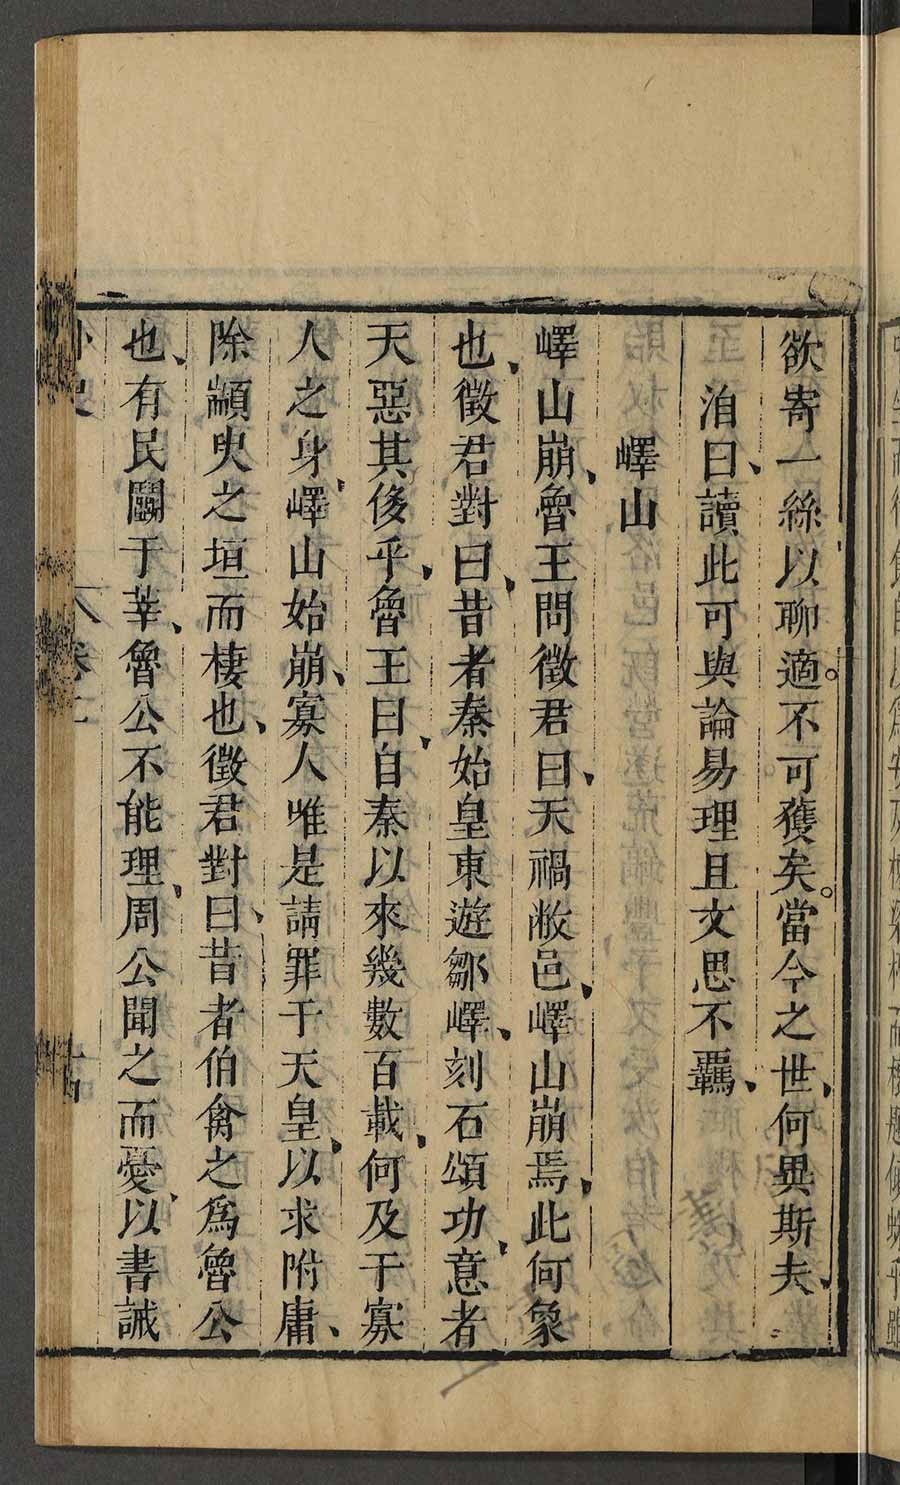 欲寄一絲以聊適。不可獲矣。當今之世、何異斯夫、
洎曰、讀此可與論易理且文思不羈、
嶧山
嶧山崩、魯王問徵君曰、天禍敝邑、嶧山崩焉、此何象
也、徵君對曰、昔者秦始皇東遊鄒嶧、刻石頌功、意者
天惡其後乎、魯王曰、自秦以來幾數百載、何及于寡
人之身、嶧山始崩、寡人唯是請罪于天皇、以求附庸、
除顓臾之垣而棲也、徵君對曰、昔者伯禽之為魯公
也、有民鬭于莘、魯公不能理、周公聞之而憂、以書誡
外史
卷二